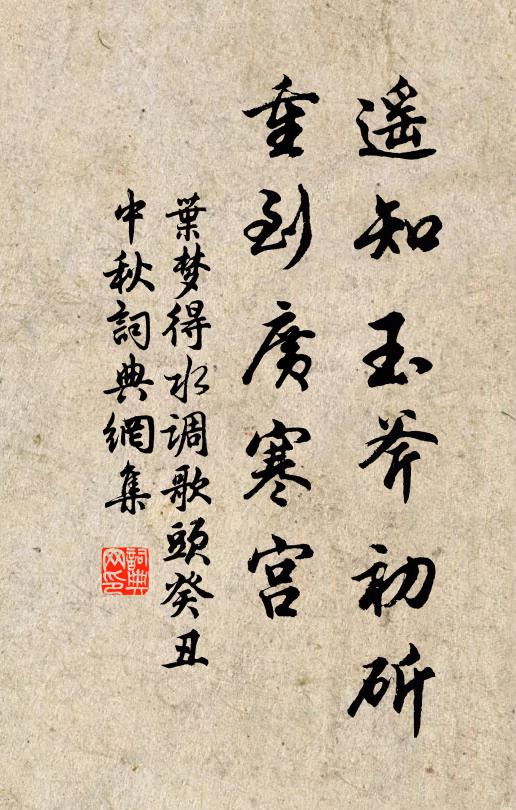 遥知玉斧初斫
重到廣寒宫
葉梦得水调歌頭癸丑
中秋詞典網集
詞典网印